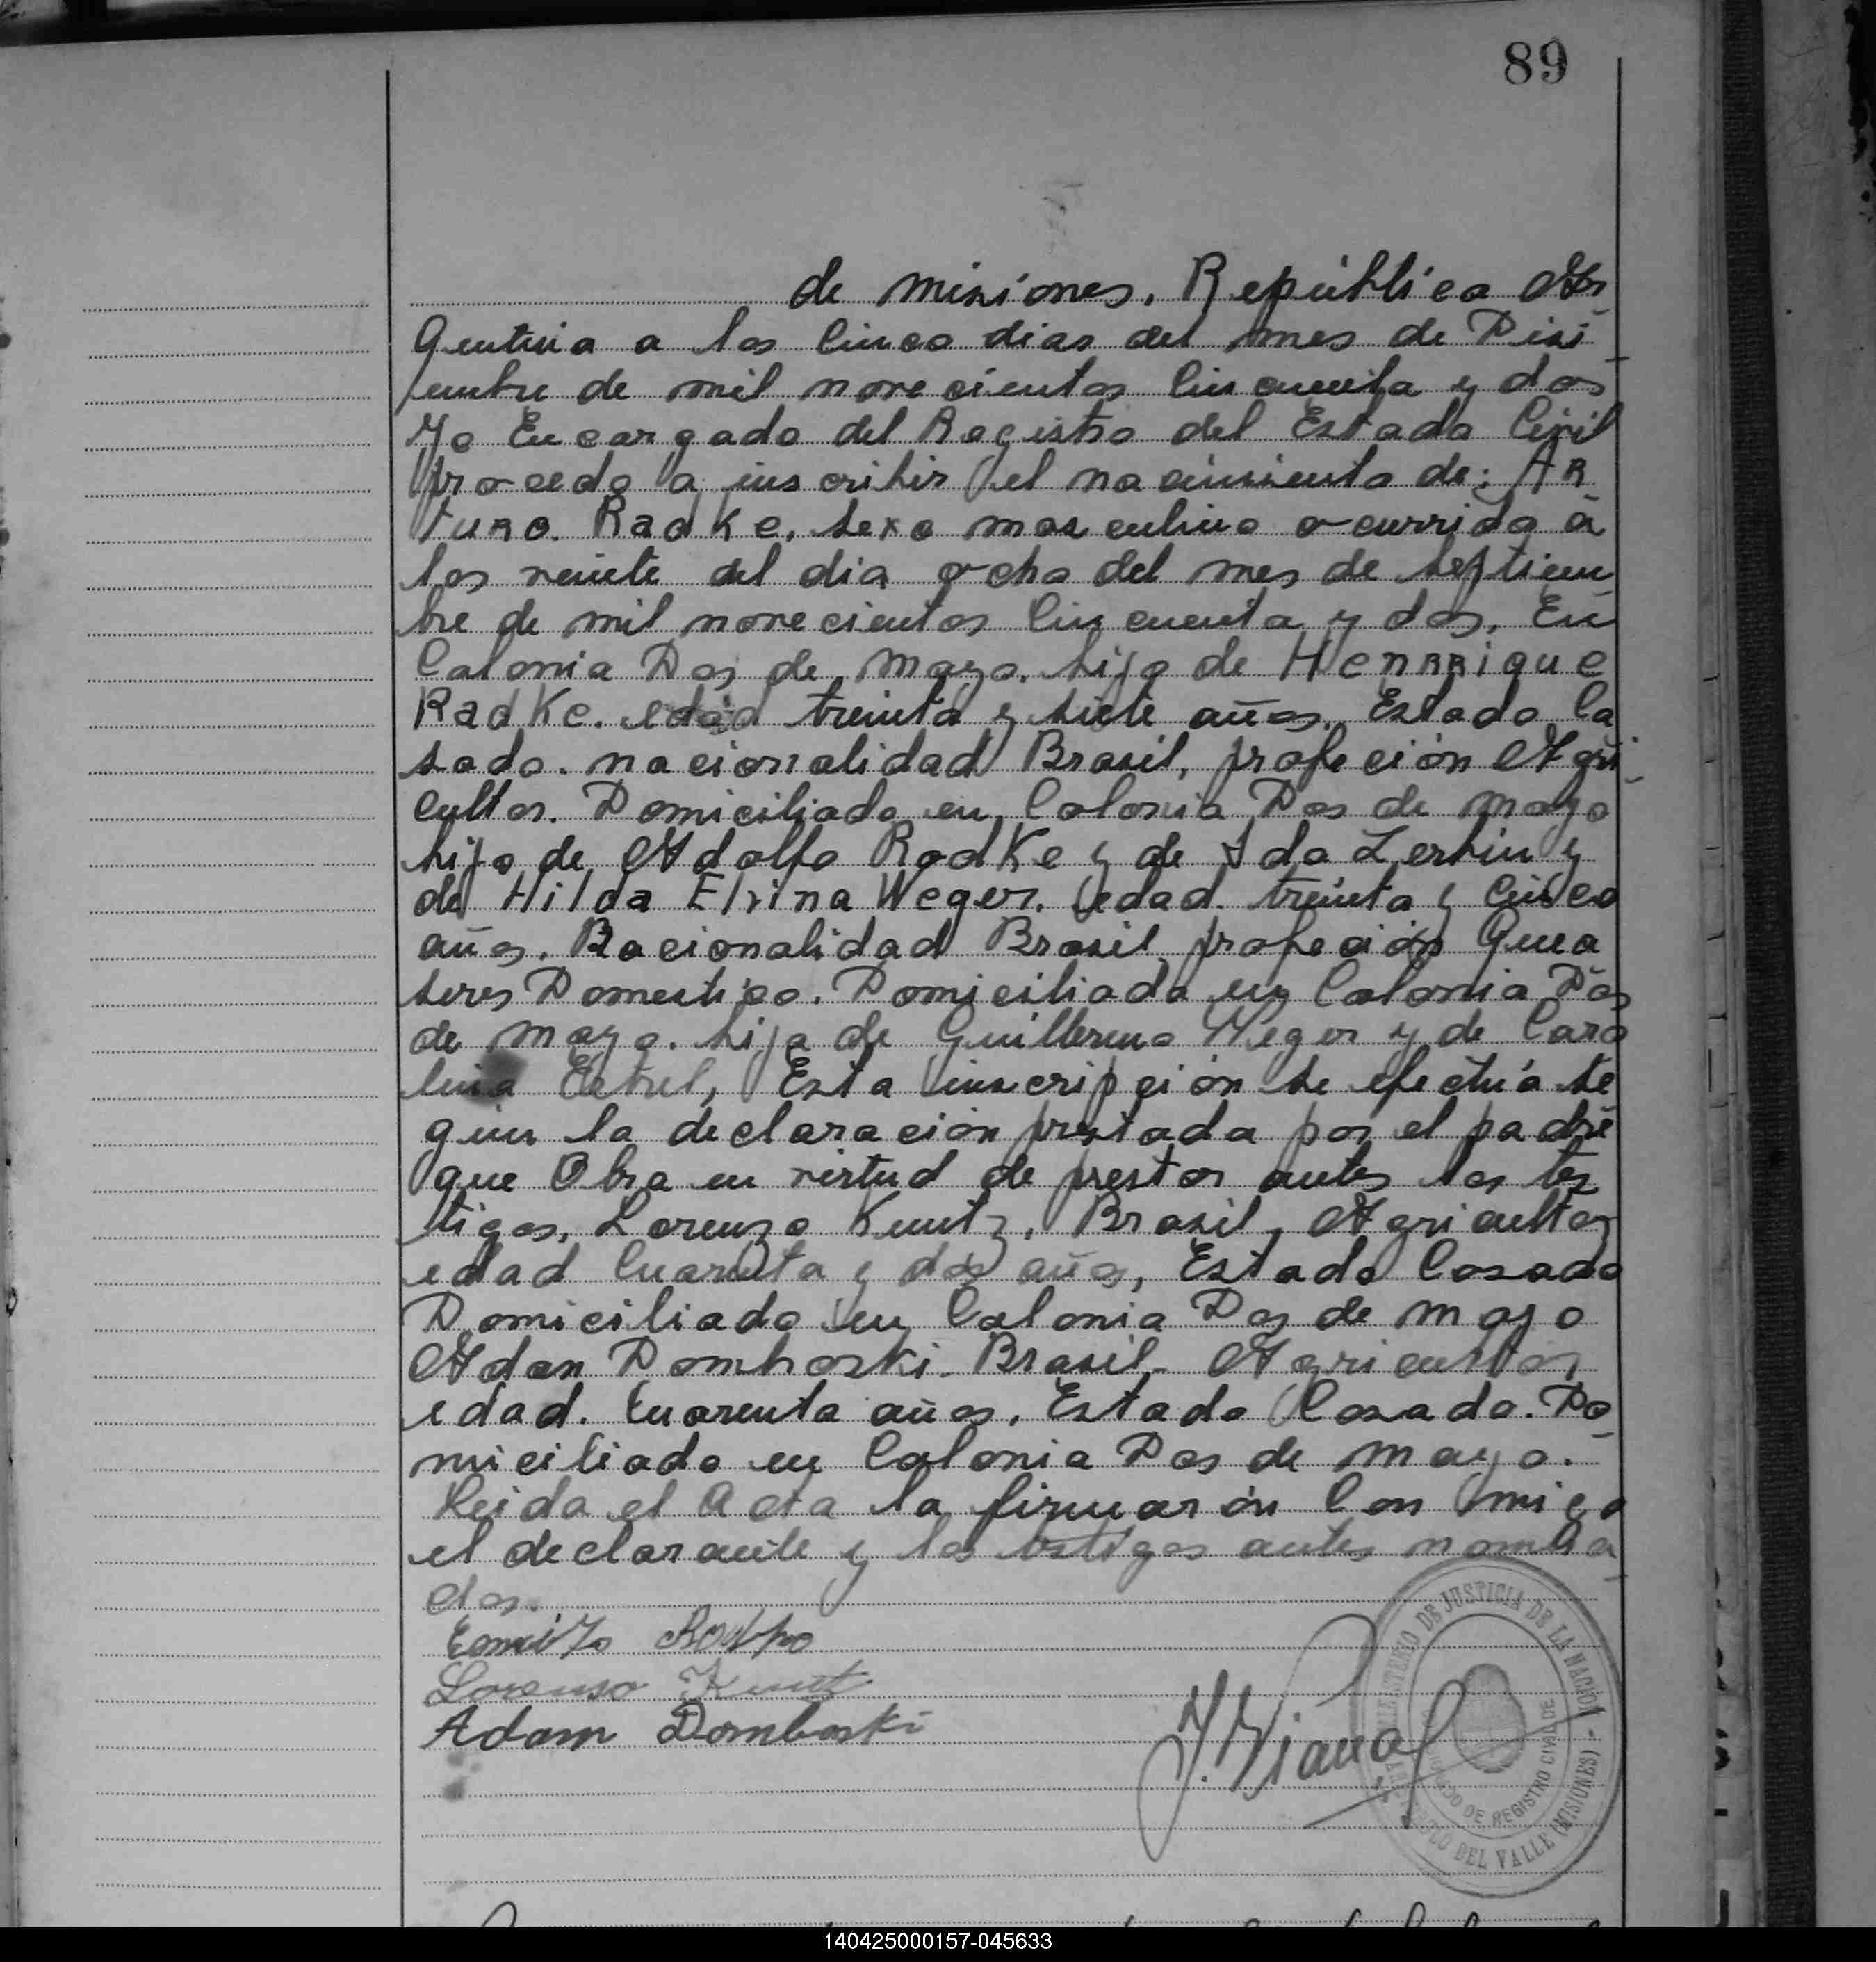 89
de misiones. República Ar
gentina a los Cinco dias del mes de Disi
embre de mil novecientos Cincuenta y dos
Yo Encargado del Registro del Estado Civil
procedo a inscribir el nacimiento de: AR
TURO. RadKe. sexo masculino ocurrido a
las veinte del dia ocho del mes de septiem
bre de mil novecientos Cincuenta y dos. En
Colonia Dos de mayo. hijo de HenRRique
RadKe. edad treinta y siete años. Estado Ca
sado. nacionalidad Brasil, profeción Agri
cultor. Domiciliado en Colonia Dos de mayo
hijo de Adolfo RadKe y de Ida y
de Hilda Elvina Weger. edad. treinta y Cinco
años. Nacionalidad Brasil profeción Quea
seres Domestico. Domiciliada en Colonia Dos
de mayo. hija de Guillermo Weger y de Caro
lina Esta inscripción se efectúa se
gun la declaración prestada por el padre
que Obra en virtud de prestar antes los tes
tigos, Lorenzo Kuntz, Brasil, Agricultor
edad Cuarenta y dos años, Estado Casado
Domiciliado en Colonia Dos de mayo
Adan Domboski. Brasil. Agricultor
edad. Cuarenta años. Estado Casado. Do
miciliado en Colonia Dos de mayo.
Leida el Acta la firmarón Con migo
el declarante y los testigos antes nombra
dos.
Lorenso Kunt
Adam Domboski
MINISTERIO DE JUSTICIA DE LA NACION
DE REGISTRO CIVIL DE
DEL VALLE (MISIONES)
140425000157-045633